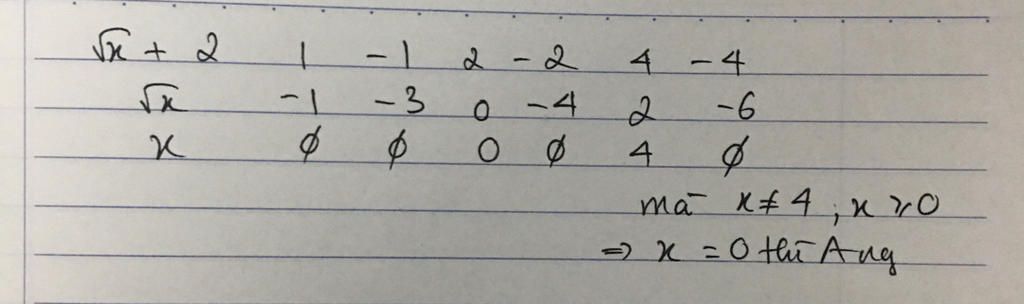 √x + 2 1 -1 2 -2 4 -4
√x -1 -3 0 -4 2 -6
x ∅ ∅ 0 ∅ 4 ∅
mà x ≠ 4 ; x ≥ 0
=> x = 0 thì A ng